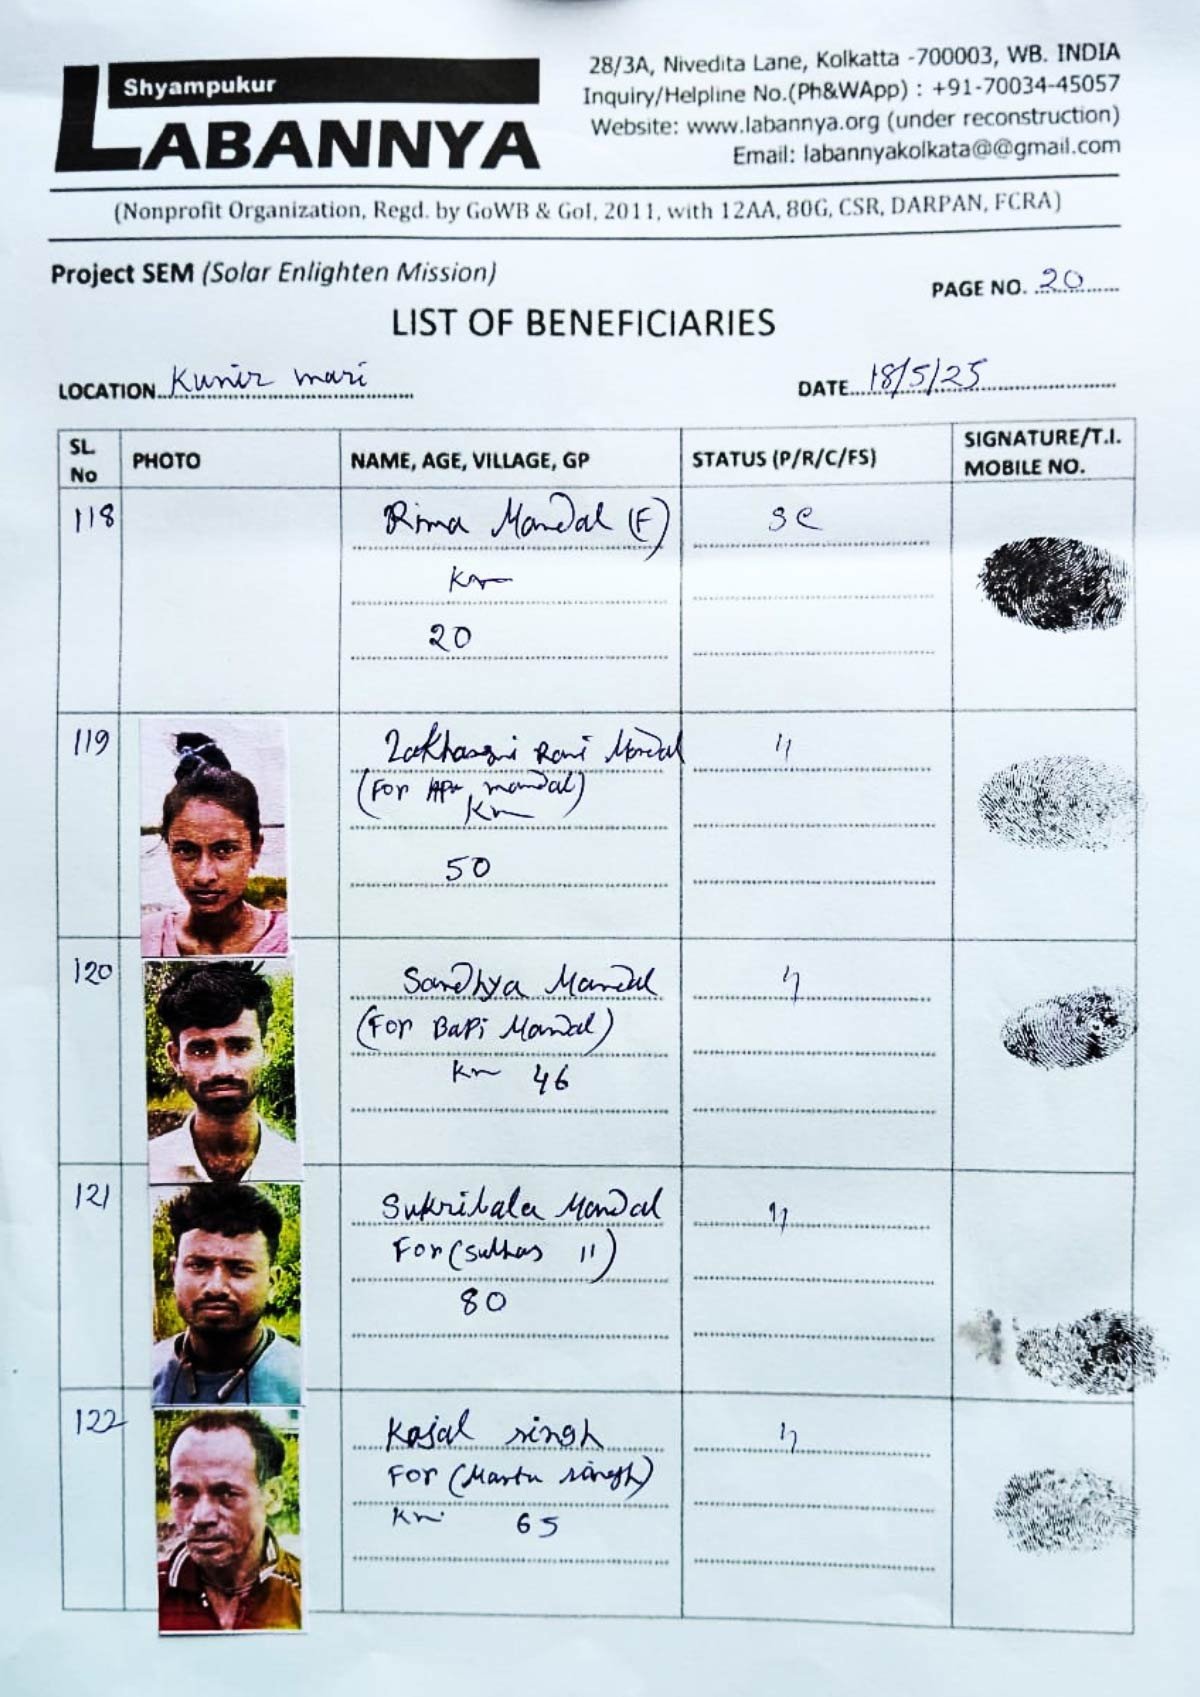 Shyampukur
LABANNYA
28/3A, Nivedita Lane, Kolkatta -700003, WB. INDIA
Inquiry/Helpline No.(Ph&WApp) : +91-70034-45057
Website: www.labannya.org (under reconstruction)
Email: labannyakolkata@@gmail.com
(Nonprofit Organization, Regd. by GoWB & GoI, 2011, with 12AA, 80G, CSR, DARPAN, FCRA)
Project SEM (Solar Enlighten Mission)
PAGE NO. 20
LIST OF BENEFICIARIES
LOCATION Kunir mari
DATE 18/5/25
SL. No PHOTO NAME, AGE, VILLAGE, GP STATUS (P/R/C/FS) SIGNATURE/T.I. MOBILE NO.
118 Rima Mandal (F) SC
Km
20
119 Rani Mondal "
(For mandal)
Km
50
120 Sandhya Mandal "
(For Bapi Mandal)
Km 46
121 Sukribala Mondal "
For (Suthas 11)
80
122 Kajal Singh "
For (Mantu Singh)
Km 65